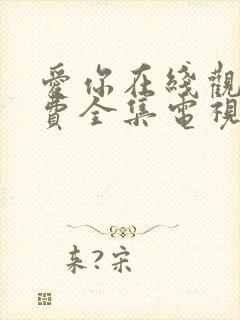 愛你在綫觀
費全集電視
来?宋